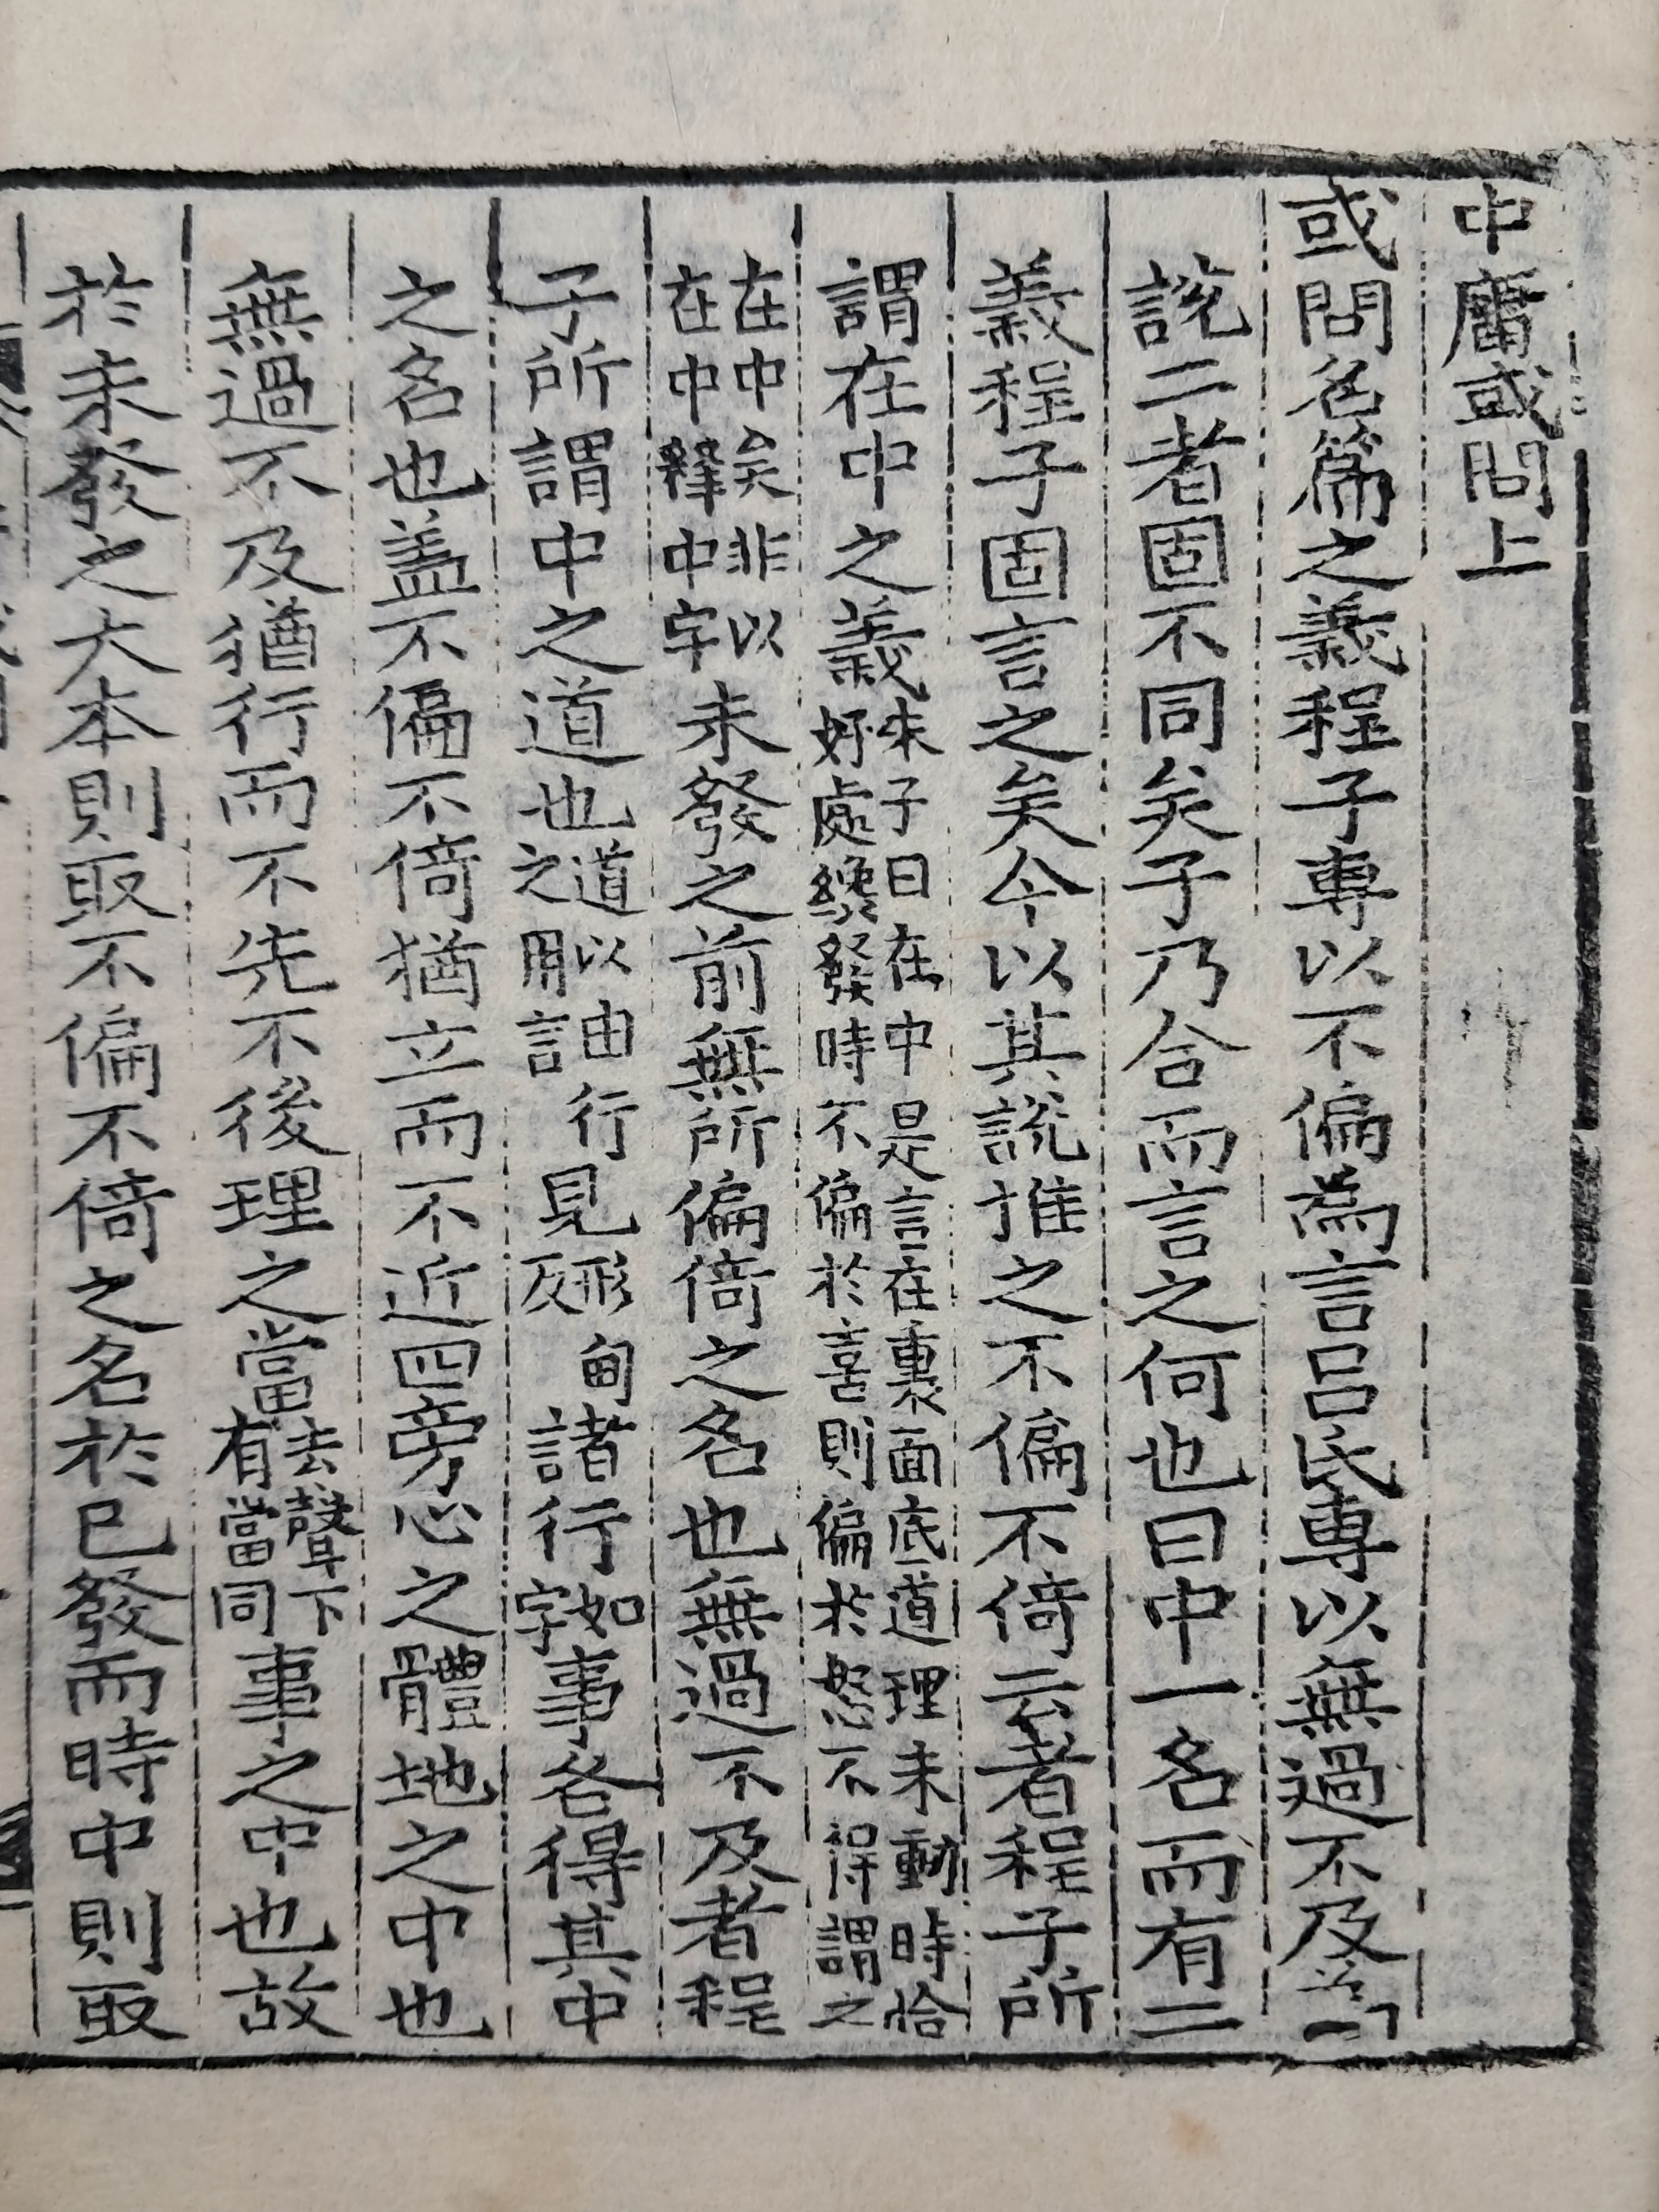 中庸或問上
或問名篇之義程子專以不偏為言呂氏專以無過不及
說二者固不同矣子乃合而言之何也曰中一名而有二
義程子固言之矣今以其說推之不偏不倚云者程子所
謂在中之義朱子曰在中是言在裏面底道理未動時恰好處纔發時不偏於喜則偏於怒不得謂之
在中矣非以在中釋中字未發之前無所偏倚之名也無過不及者程
子所謂中之道也道以由行之用言見形甸反諸行如字事各得其中
之名也盖不偏不倚猶立而不近四旁心之體地之中也
無過不及猶行而不先不後理之當去聲下有當同事之中也故
於未發之大本則取不偏不倚之名於已發而時中則取